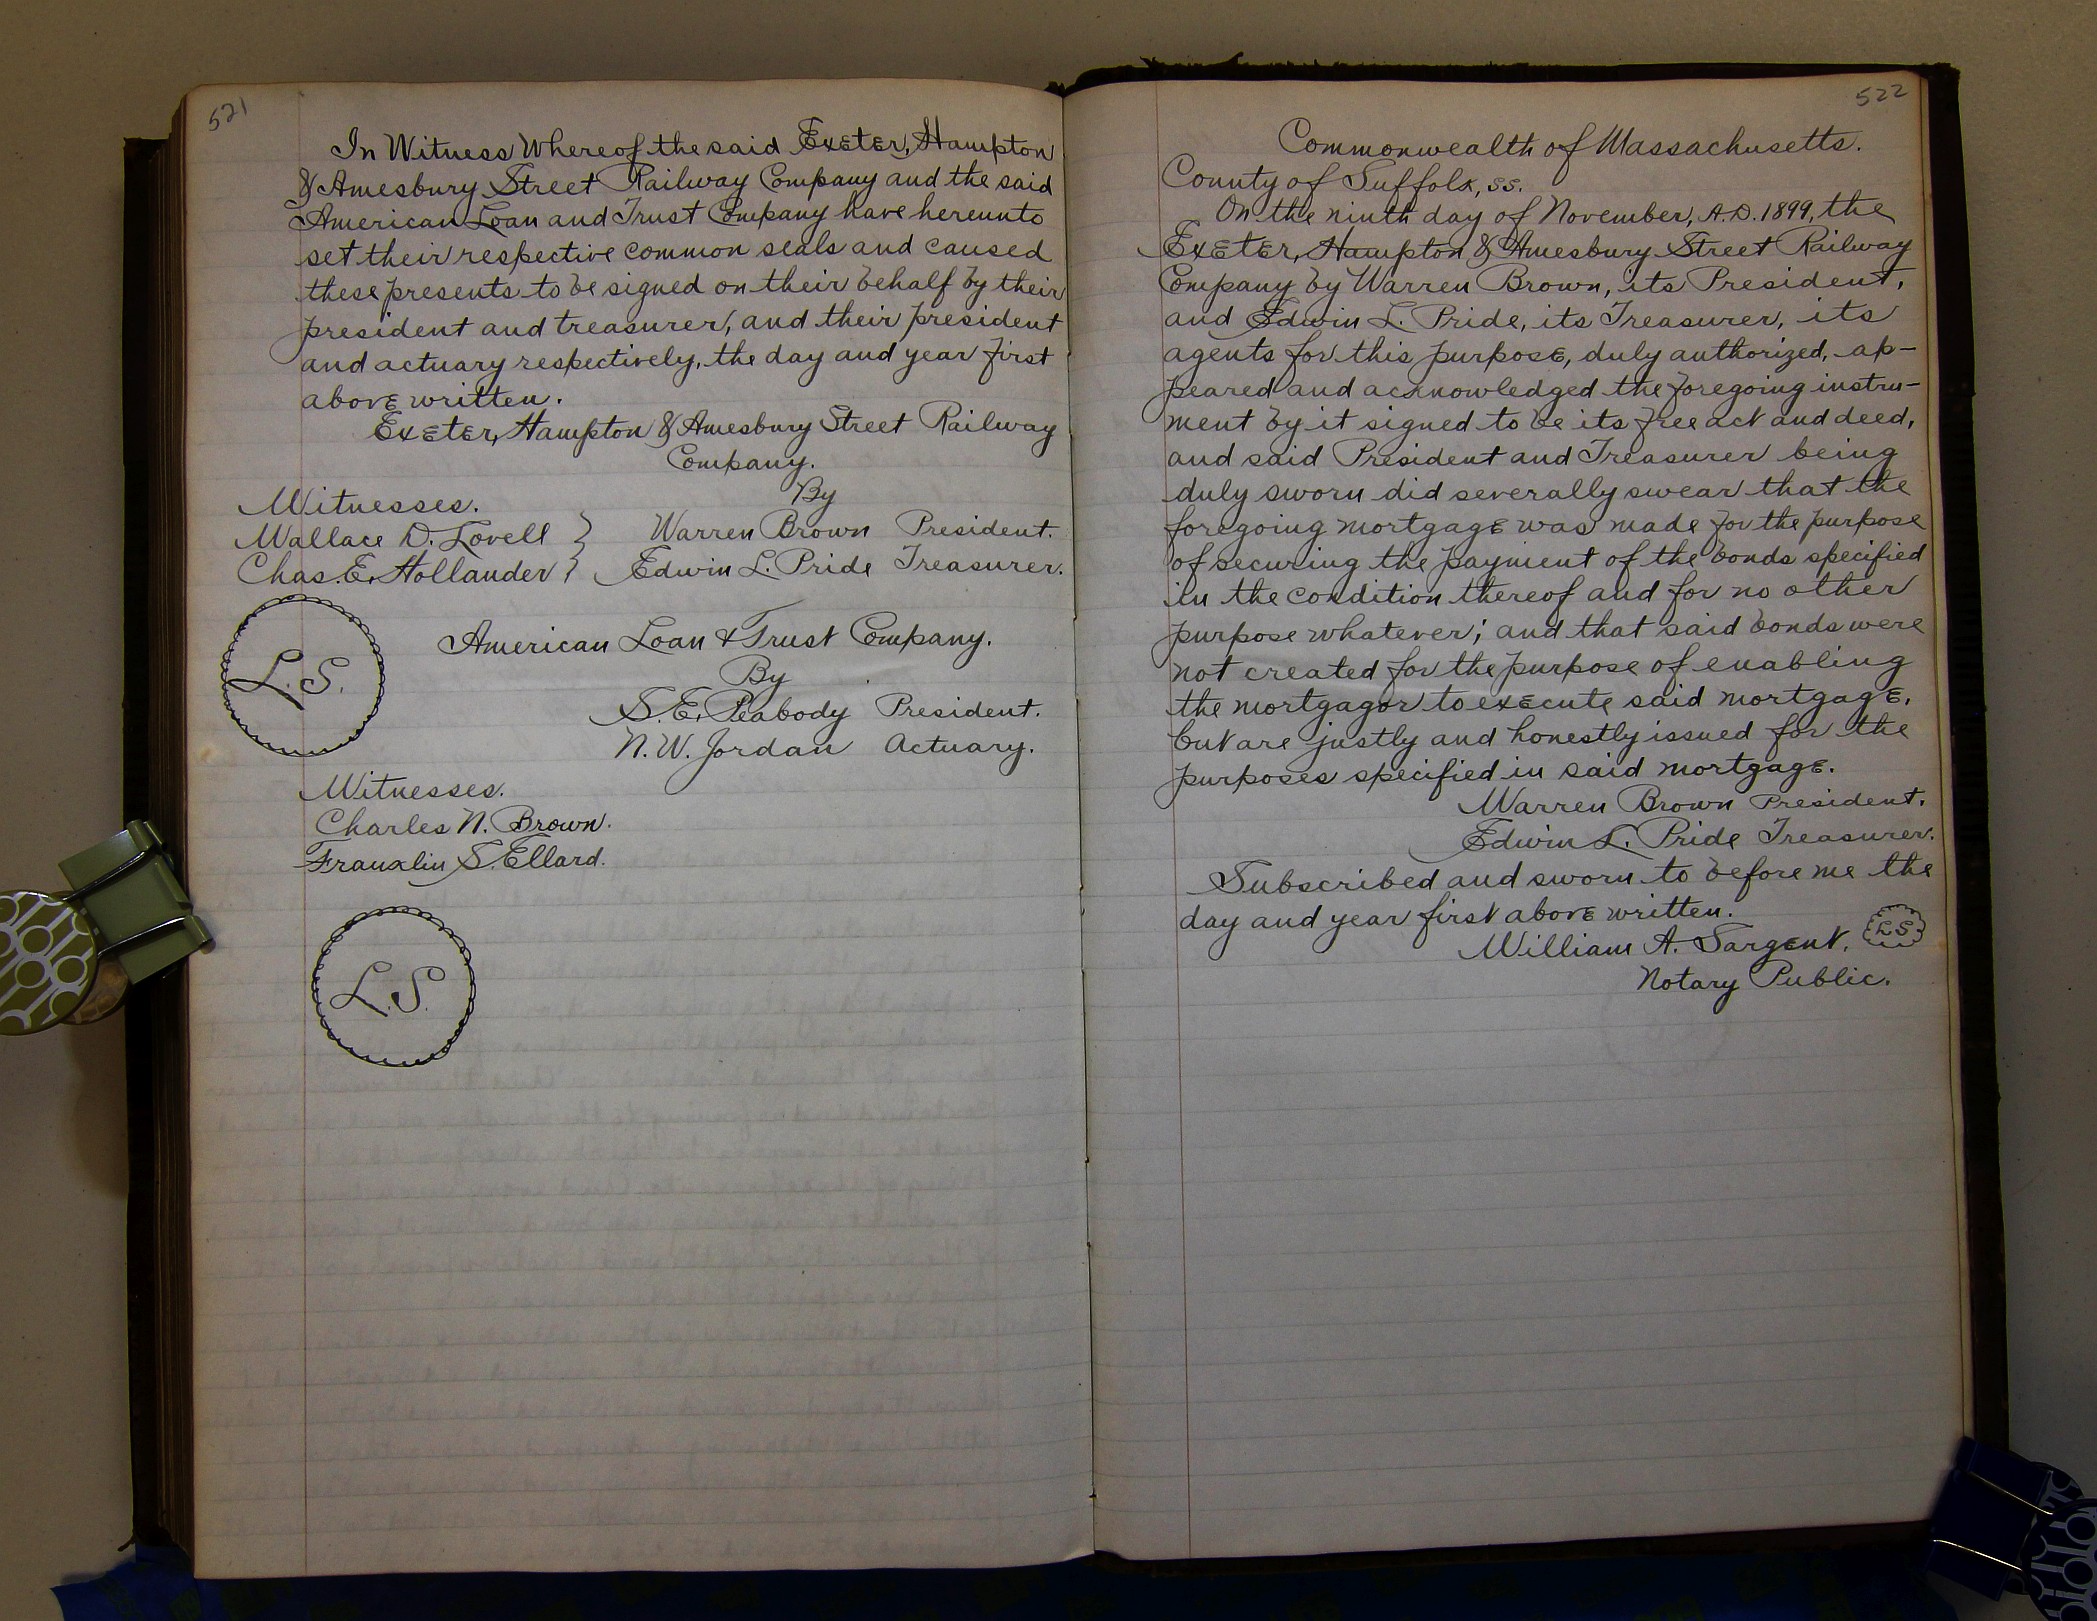 521
In Witness Whereof the said Exeter, Hampton
& Amesbury Street Railway Company and the said
American Loan and Trust Company have hereunto
set their respective common seals and caused
these presents to be signed on their behalf by their
president and treasurer, and their president
and actuary respectively, the day and year first
above written.
Exeter, Hampton & Amesbury Street Railway
Company.
Witnesses. By
Wallace D. Lovell } Warren Brown President.
Chas. E. Hollander } Edwin L. Pride Treasurer.
L.S. American Loan & Trust Company.
By
S. E. Peabody President.
N. W. Jordan Actuary.
Witnesses.
Charles N. Brown.
Franklin S. Ellard.
L.S.
522
Commonwealth of Massachusetts.
County of Suffolk, ss.
On the ninth day of November, A.D. 1899, the
Exeter, Hampton & Amesbury Street Railway
Company by Warren Brown, its President,
and Edwin L. Pride, its Treasurer, its
agents for this purpose, duly authorized, ap-
peared and acknowledged the foregoing instru-
ment by it signed to be its free act and deed,
and said President and Treasurer being
duly sworn did severally swear that the
foregoing mortgage was made for the purpose
of securing the payment of the bonds specified
in the condition thereof and for no other
purpose whatever; and that said bonds were
not created for the purpose of enabling
the mortgagor to execute said mortgage,
but are justly and honestly issued for the
purposes specified in said mortgage.
Warren Brown President.
Edwin L. Pride Treasurer.
Subscribed and sworn to before me the
day and year first above written.
William A. Sargent. LS
Notary Public.